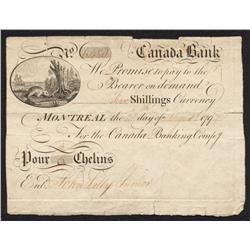 No. Canada Bank
We Promise to pay to the
Bearer on demand
Five Shillings Currency
MONTREAL the day of 179
For the Canada Banking Compy
Pour 5 Chelins
Entd. John Lilly Junior